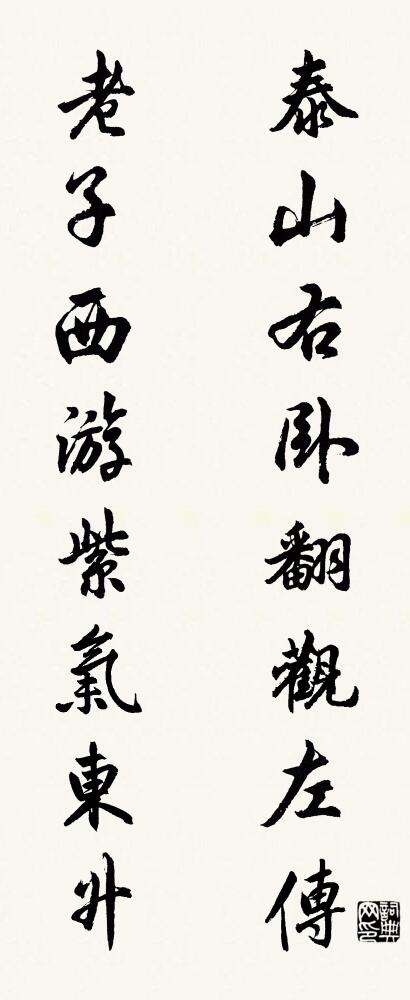 泰山右卧翻觀左傳
老子西游紫氣東升
詞典网印